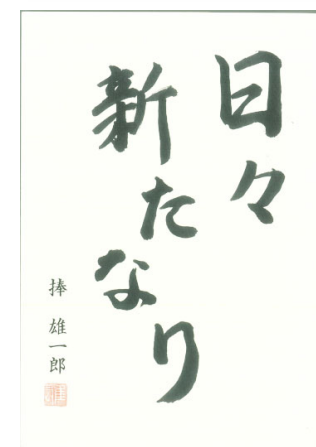 日々
新たなり
捧 雄一郎